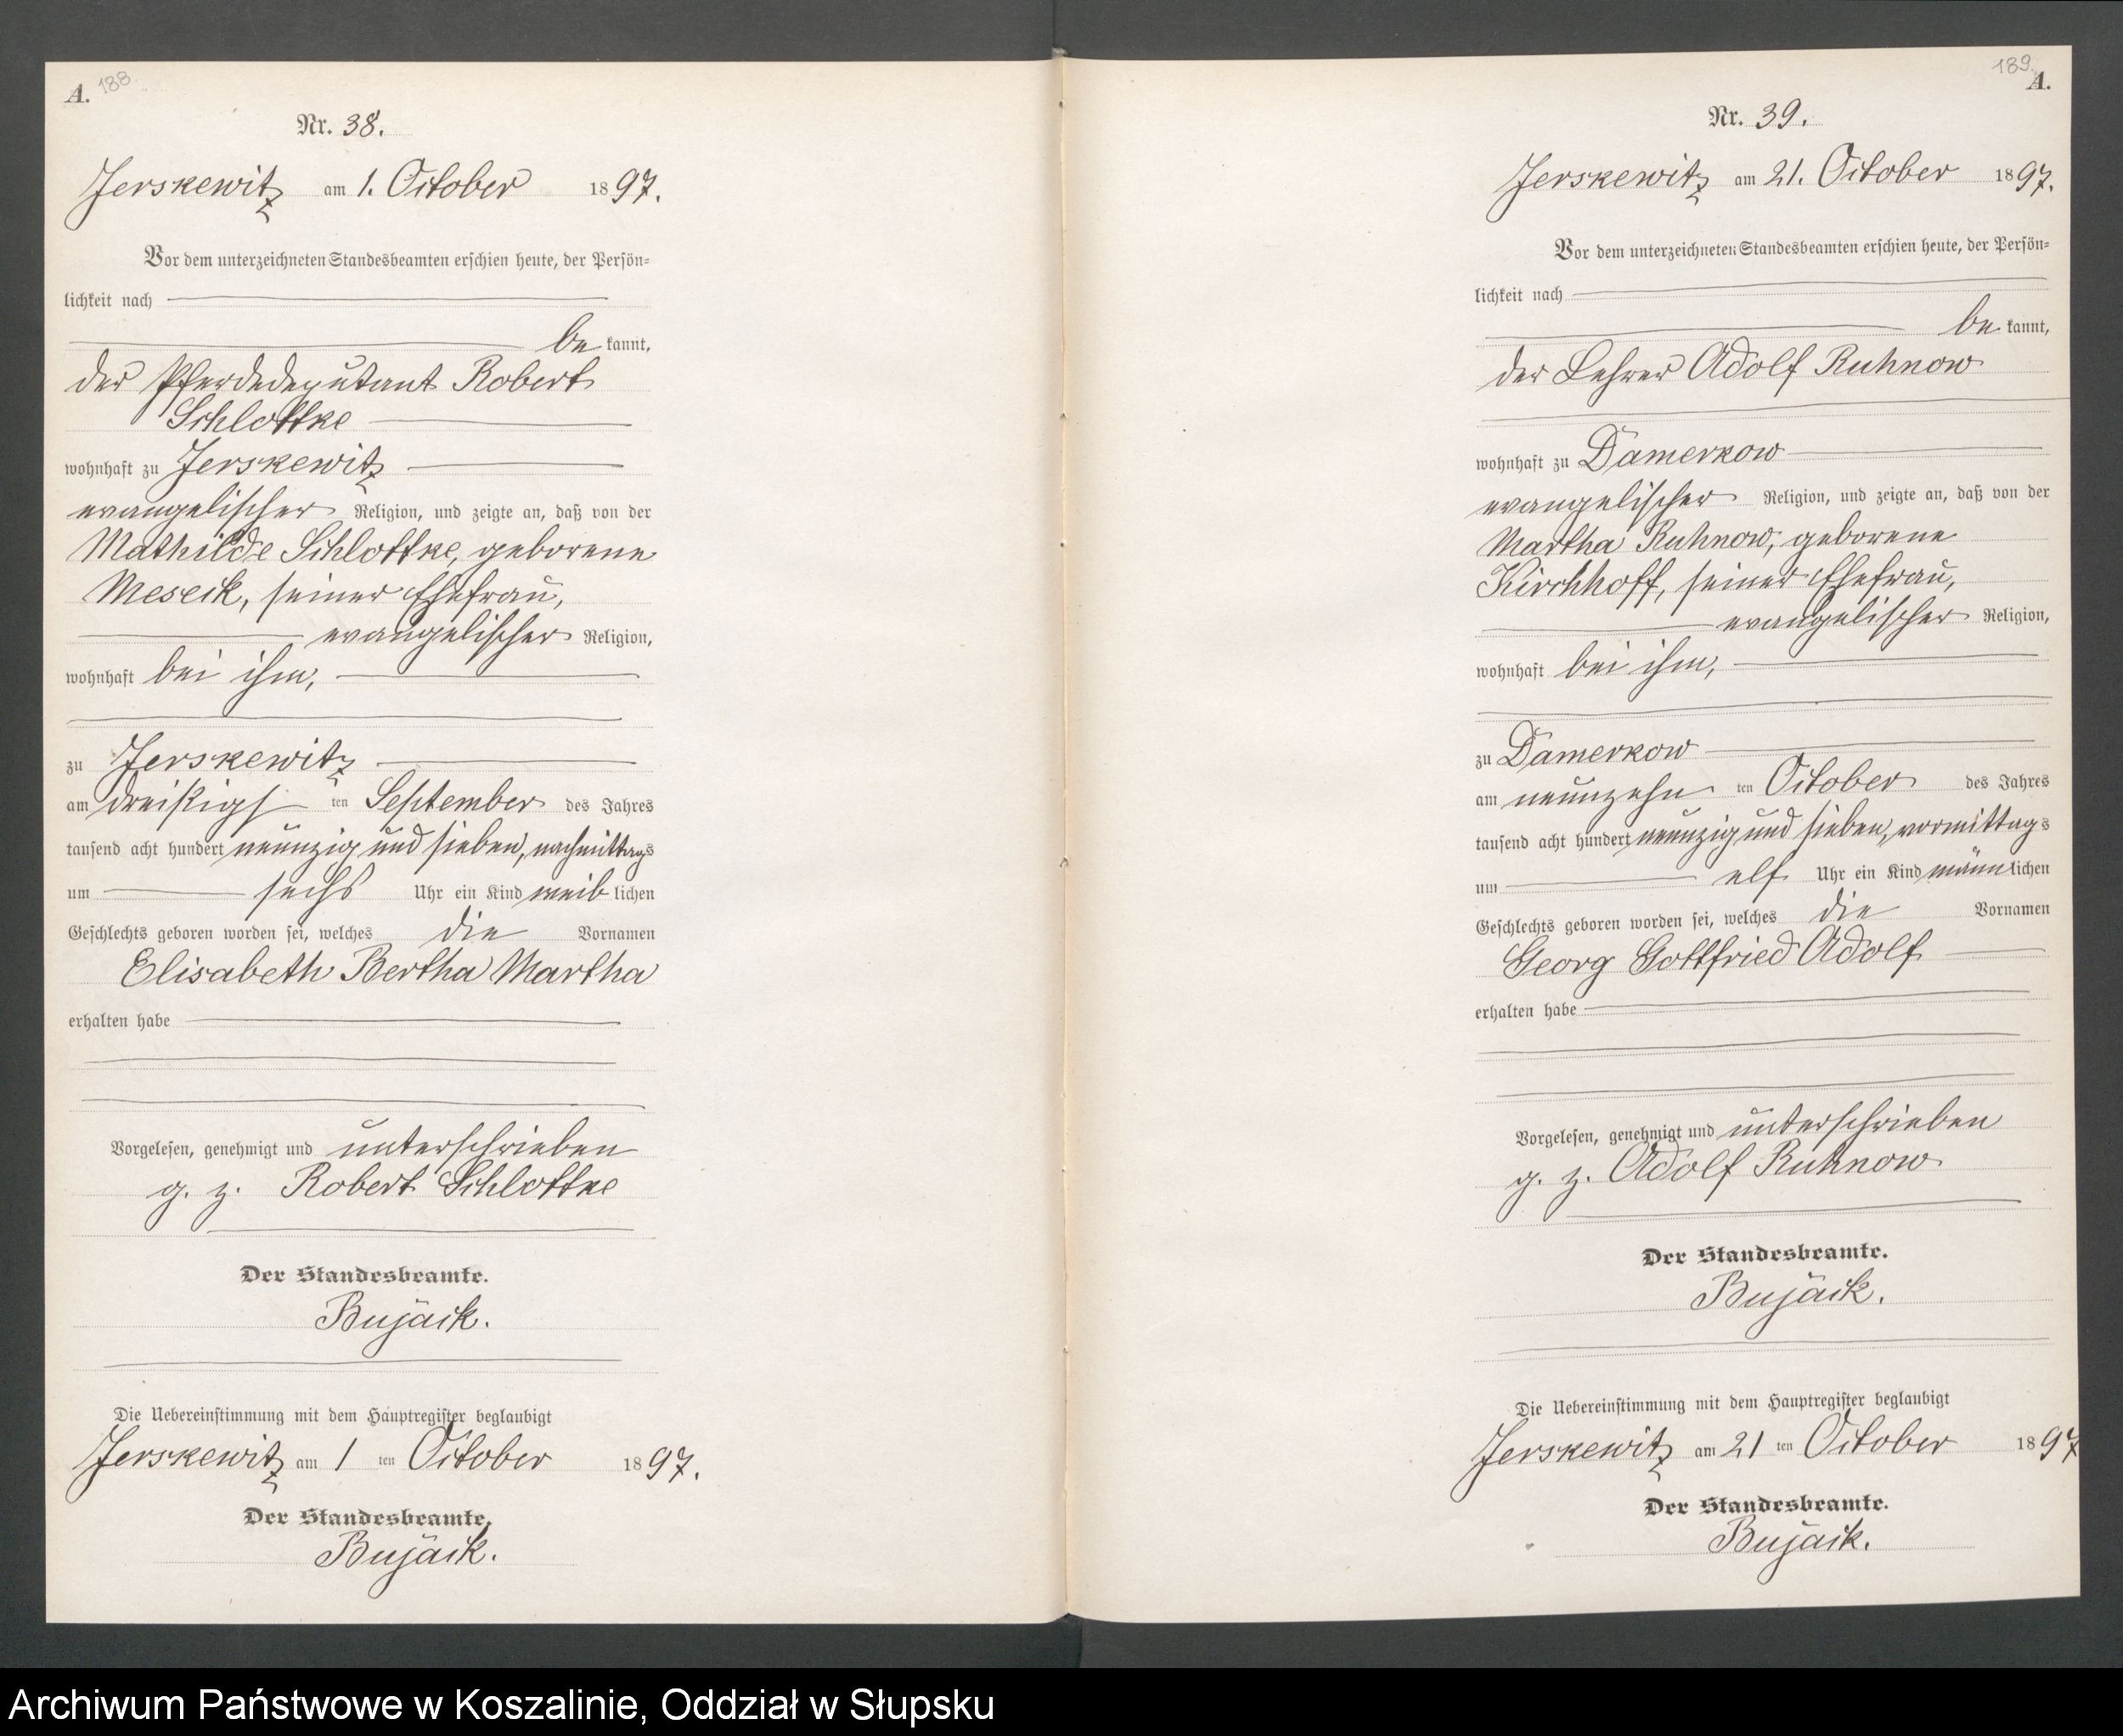 A. 188
Nr. 38.
Jerskewitz am 1. October 1897.
Vor dem unterzeichneten Standesbeamten erschien heute, der Persön-
lichkeit nach
be kannt,
der Pferdedeputant Robert
Schlottke
wohnhaft zu Jerskewitz
evangelischer Religion, und zeigte an, daß von der
Mathilde Schlottke, geborene
Meseck, seiner Ehefrau,
evangelischer Religion,
wohnhaft bei ihm,
zu Jerskewitz
am dreißigs ten September des Jahres
tausend acht hundert neunzig und sieben, nachmittags
um sechs Uhr ein Kind weib lichen
Geschlechts geboren worden sei, welches die Vornamen
Elisabeth Bertha Martha
erhalten habe
Vorgelesen, genehmigt und unterschrieben
g. z. Robert Schlottke
Der Standesbeamte.
Bujack.
Die Uebereinstimmung mit dem Hauptregister beglaubigt
Jerskewitz am 1 ten October 1897.
Der Standesbeamte.
Bujack.
189. A.
Nr. 39.
Jerskewitz am 21. October 1897.
Vor dem unterzeichneten Standesbeamten erschien heute, der Persön-
lichkeit nach
be kannt,
der Lehrer Adolf Ruhnow
wohnhaft zu Damerkow
evangelischer Religion, und zeigte an, daß von der
Martha Ruhnow, geborene
Kirchhoff, seiner Ehefrau,
evangelischer Religion,
wohnhaft bei ihm,
zu Damerkow
am neunzehn ten October des Jahres
tausend acht hundert neunzig und sieben, vormittags
um elf Uhr ein Kind männlichen
Geschlechts geboren worden sei, welches die Vornamen
Georg Gottfried Adolf
erhalten habe
Vorgelesen, genehmigt und unterschrieben
g. z. Adolf Ruhnow
Der Standesbeamte.
Bujack.
Die Uebereinstimmung mit dem Hauptregister beglaubigt
Jerskewitz am 21 ten October 1897
Der Standesbeamte.
Bujack.
Archiwum Państwowe w Koszalinie, Oddział w Słupsku